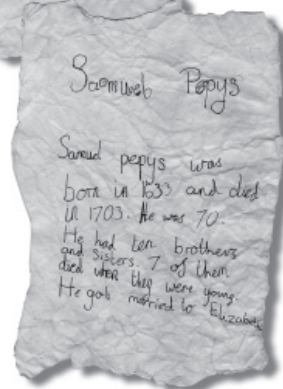 Saemueb Pepys
Samuel pepys was
born in 1633 and died
in 1703. He was 70.
He had ten brothers
and sisters. 7 of them
died when they were young.
He got married to Elizabeth